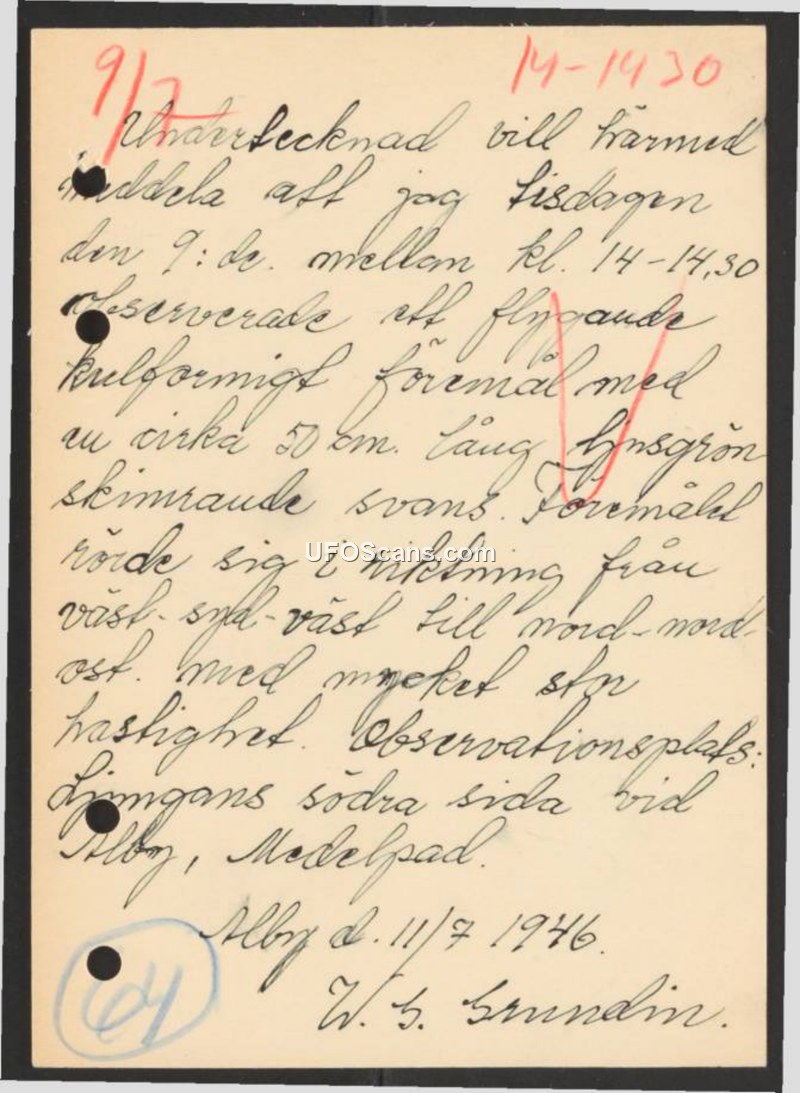 9/7
14-1430
Undertecknad vill härmed
meddela att jag tisdagen
den 9:de. mellan kl. 14-14,30
observerade ett flygande
kulformigt föremål med
en cirka 50 cm. lång ljusgrön
skimrande svans. Föremålet
rörde sig i riktning från
väst-syd-väst till nord-nord-
ost. med mycket stor
hastighet. Observationsplats:
Ljungans södra sida vid
Alby, Medelpad.
Alby d. 11/7 1946.
W. G. Grundin.
64
UFOScans.com